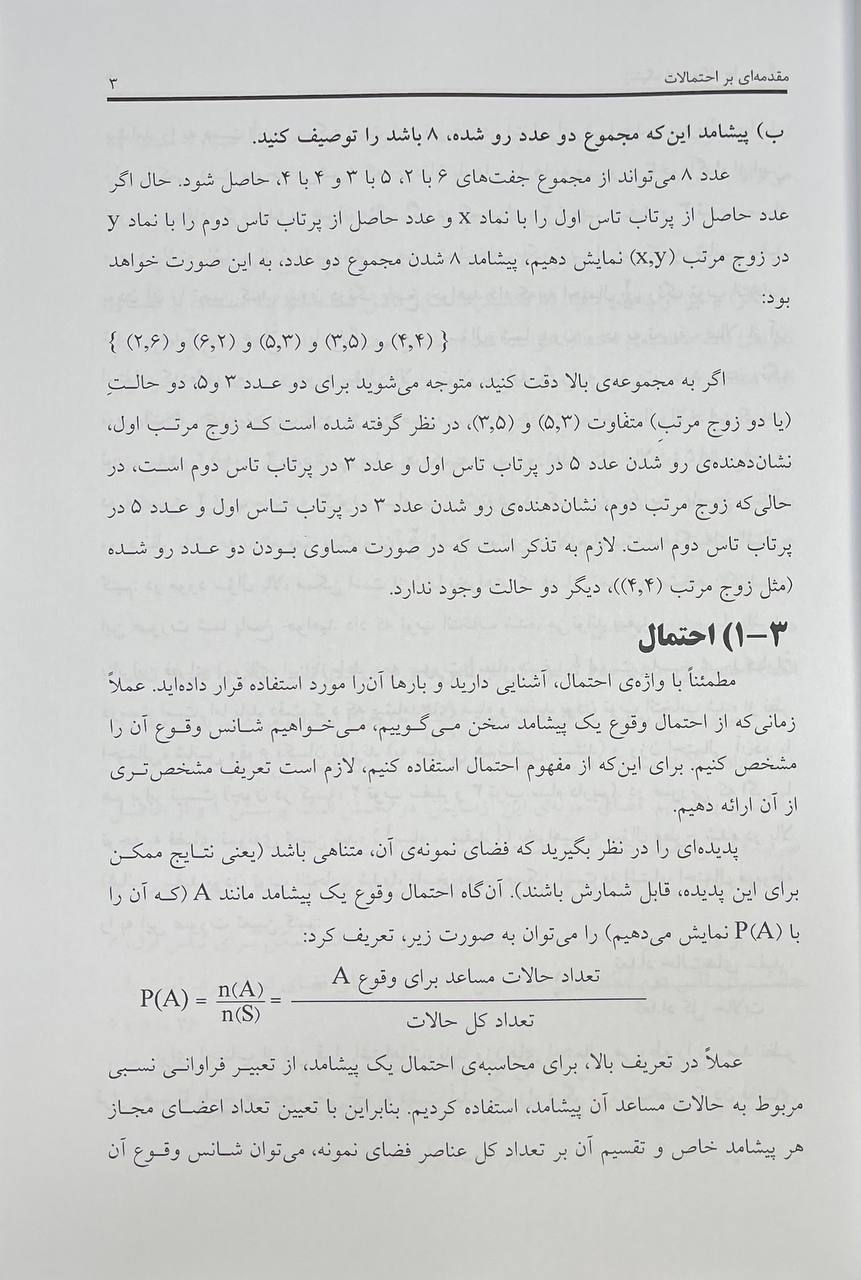 مقدمه‌ای بر احتمالات ۳
ب) پیشامد این‌که مجموع دو عدد رو شده، ۸ باشد را توصیف کنید.
عدد ۸ می‌تواند از مجموع جفت‌های ۶ با ۲، ۵ با ۳ و ۴ با ۴، حاصل شود. حال اگر
عدد حاصل از پرتاب تاس اول را با نماد x و عدد حاصل از پرتاب تاس دوم را با نماد y
در زوج مرتب (x,y) نمایش دهیم، پیشامد ۸ شدن مجموع دو عدد، به این صورت خواهد
بود:
{ (۴,۴) و (۳,۵) و (۵,۳) و (۶,۲) و (۲,۶) }
اگر به مجموعه‌ی بالا دقت کنید، متوجه می‌شوید برای دو عدد ۳ و۵، دو حالتِ
(یا دو زوج مرتبِ) متفاوت (۵,۳) و (۳,۵)، در نظر گرفته شده است که زوج مرتب اول،
نشان‌دهنده‌ی رو شدن عدد ۵ در پرتاب تاس اول و عدد ۳ در پرتاب تاس دوم است، در
حالی‌که زوج مرتب دوم، نشان‌دهنده‌ی رو شدن عدد ۳ در پرتاب تاس اول و عدد ۵ در
پرتاب تاس دوم است. لازم به تذکر است که در صورت مساوی بودن دو عدد رو شده
(مثل زوج مرتب (۴,۴))، دیگر دو حالت وجود ندارد.
۱-۳) احتمال
مطمئناً با واژه‌ی احتمال، آشنایی دارید و بارها آن‌را مورد استفاده قرار داده‌اید. عملاً
زمانی‌که از احتمال وقوع یک پیشامد سخن می‌گوییم، می‌خواهیم شانس وقوع آن را
مشخص کنیم. برای این‌که از مفهوم احتمال استفاده کنیم، لازم است تعریف مشخص‌تری
از آن ارائه دهیم.
پدیده‌ای را در نظر بگیرید که فضای نمونه‌ی آن، متناهی باشد (یعنی نتایج ممکن
برای این پدیده، قابل شمارش باشند). آن‌گاه احتمال وقوع یک پیشامد مانند A (که آن را
با P(A) نمایش می‌دهیم) را می‌توان به صورت زیر، تعریف کرد:
P(A) = n(A)/n(S) = تعداد حالات مساعد برای وقوع A / تعداد کل حالات
عملاً در تعریف بالا، برای محاسبه‌ی احتمال یک پیشامد، از تعبیر فراوانی نسبی
مربوط به حالات مساعد آن پیشامد، استفاده کردیم. بنابراین با تعیین تعداد اعضای مجاز
هر پیشامد خاص و تقسیم آن بر تعداد کل عناصر فضای نمونه، می‌توان شانس وقوع آن